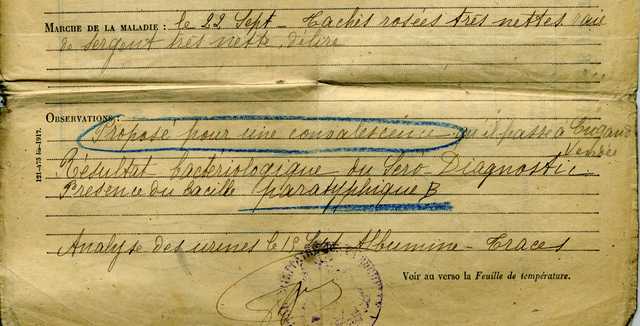 MARCHE DE LA MALADIE : le 22 Sept - Tachés rosées très nettes raie
de sergent très nette, délire
OBSERVATIONS :
Proposé pour une convalescence qu'il passe à
Vendée
Résultat bactériologique du Sero-Diagnostic
Présence du bacille paratyphique B
Analyse des urines le 19 Sept Albumine - Traces
Voir au verso la Feuille de température.
121-473 bis-1917.